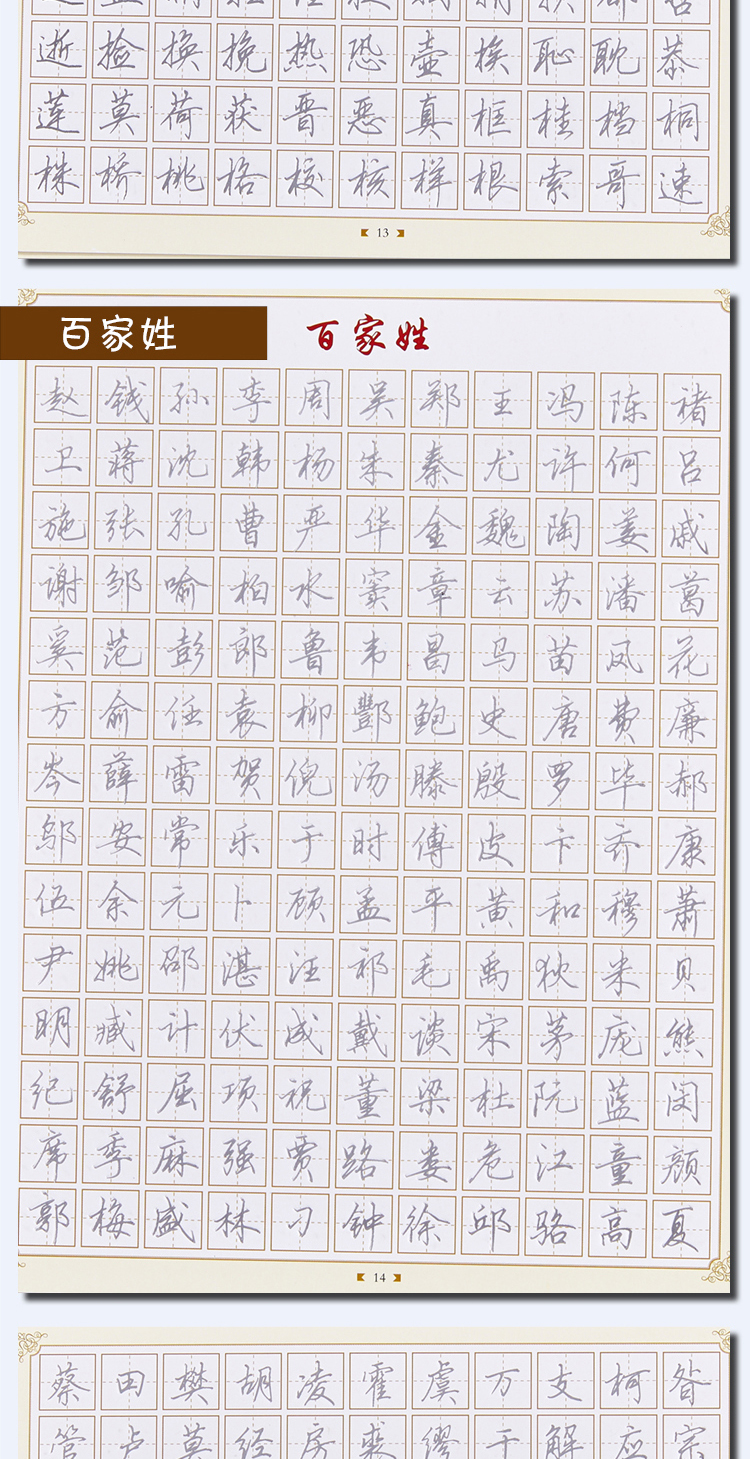 逝捡换挽热恐壶挨耻耽恭
莲莫荷获晋恶真框桂档桐
株桥桃格校核样根索哥速
13
百家姓
百家姓
赵钱孙李周吴郑王冯陈褚
卫蒋沈韩杨朱秦尤许何吕
施张孔曹严华金魏陶姜戚
谢邹喻柏水窦章云苏潘葛
奚范彭郎鲁韦昌马苗凤花
方俞任袁柳酆鲍史唐费廉
岑薛雷贺倪汤滕殷罗毕郝
邬安常乐于时傅皮卞齐康
伍余元卜顾孟平黄和穆萧
尹姚邵湛汪祁毛禹狄米贝
明臧计伏成戴谈宋茅庞熊
纪舒屈项祝董梁杜阮蓝闵
席季麻强贾路娄危江童颜
郭梅盛林刁钟徐邱骆高夏
14
蔡田樊胡凌霍虞万支柯昝
管卢莫经房裘缪干解应宗